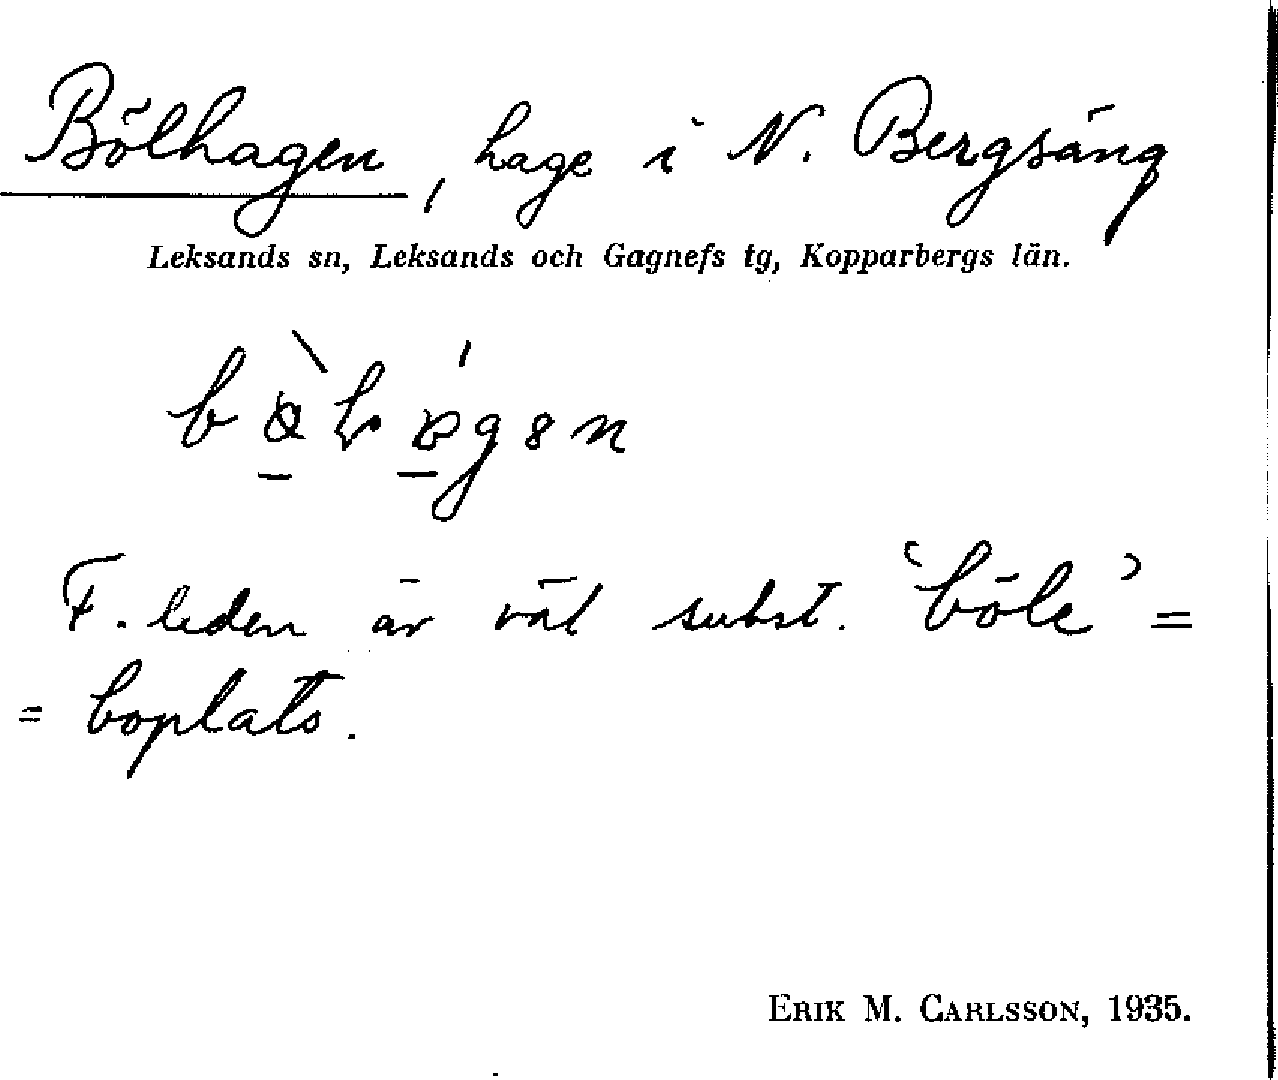 Bölhagen, hage i N. Bergsäng
Leksands sn, Leksands och Gagnefs tg, Kopparbergs län.
F. leden är väl subst. ‘böle’ =
= boplats.
ERIK M. CARLSSON, 1935.